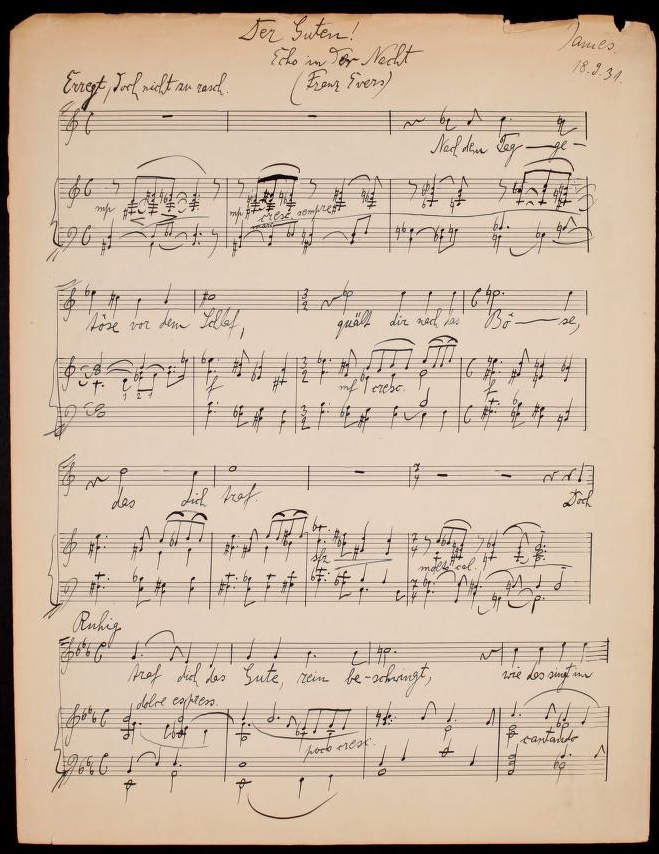 Der Guten!
James.
Echo in der Nacht
18.9.31.
(Franz Evers)
Erregt, doch nicht zu rasch.
Nach dem Tag — ge-
mp
mp cresc. sempre
töse vor dem Schlaf, quält dir nach das Bö — se,
f mf cresc. f
das dich traf. Doch
sfz molto cal.
Ruhig
traf dich das Gute, rein be-schwingt, wie das singt in
dolce espress.
poco cresc. cantando